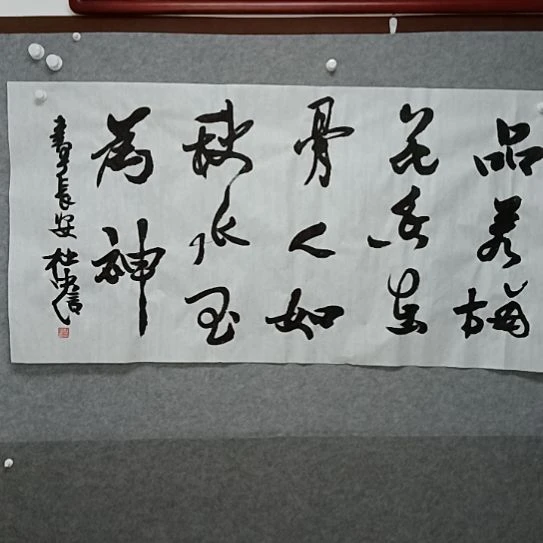 品若梅
花香在
骨人如
秋水玉
為神
書于長安 杜忠信